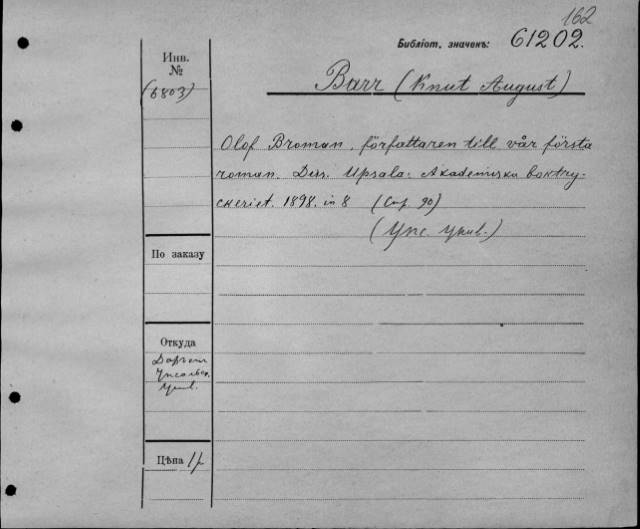 162
Библіот. значенъ: 61202.
Инв.
№
(6803)
Barr (Knut August)
Olof Broman, författaren till vår första
roman. Diss. Upsala: Akademiska boktry-
ckeriet. 1898. in 8 (Cap. 90)
(Упс. Унив.)
По заказу
Откуда
Даръ отъ
Упсальск.
Унив.
Цѣна 1 р.